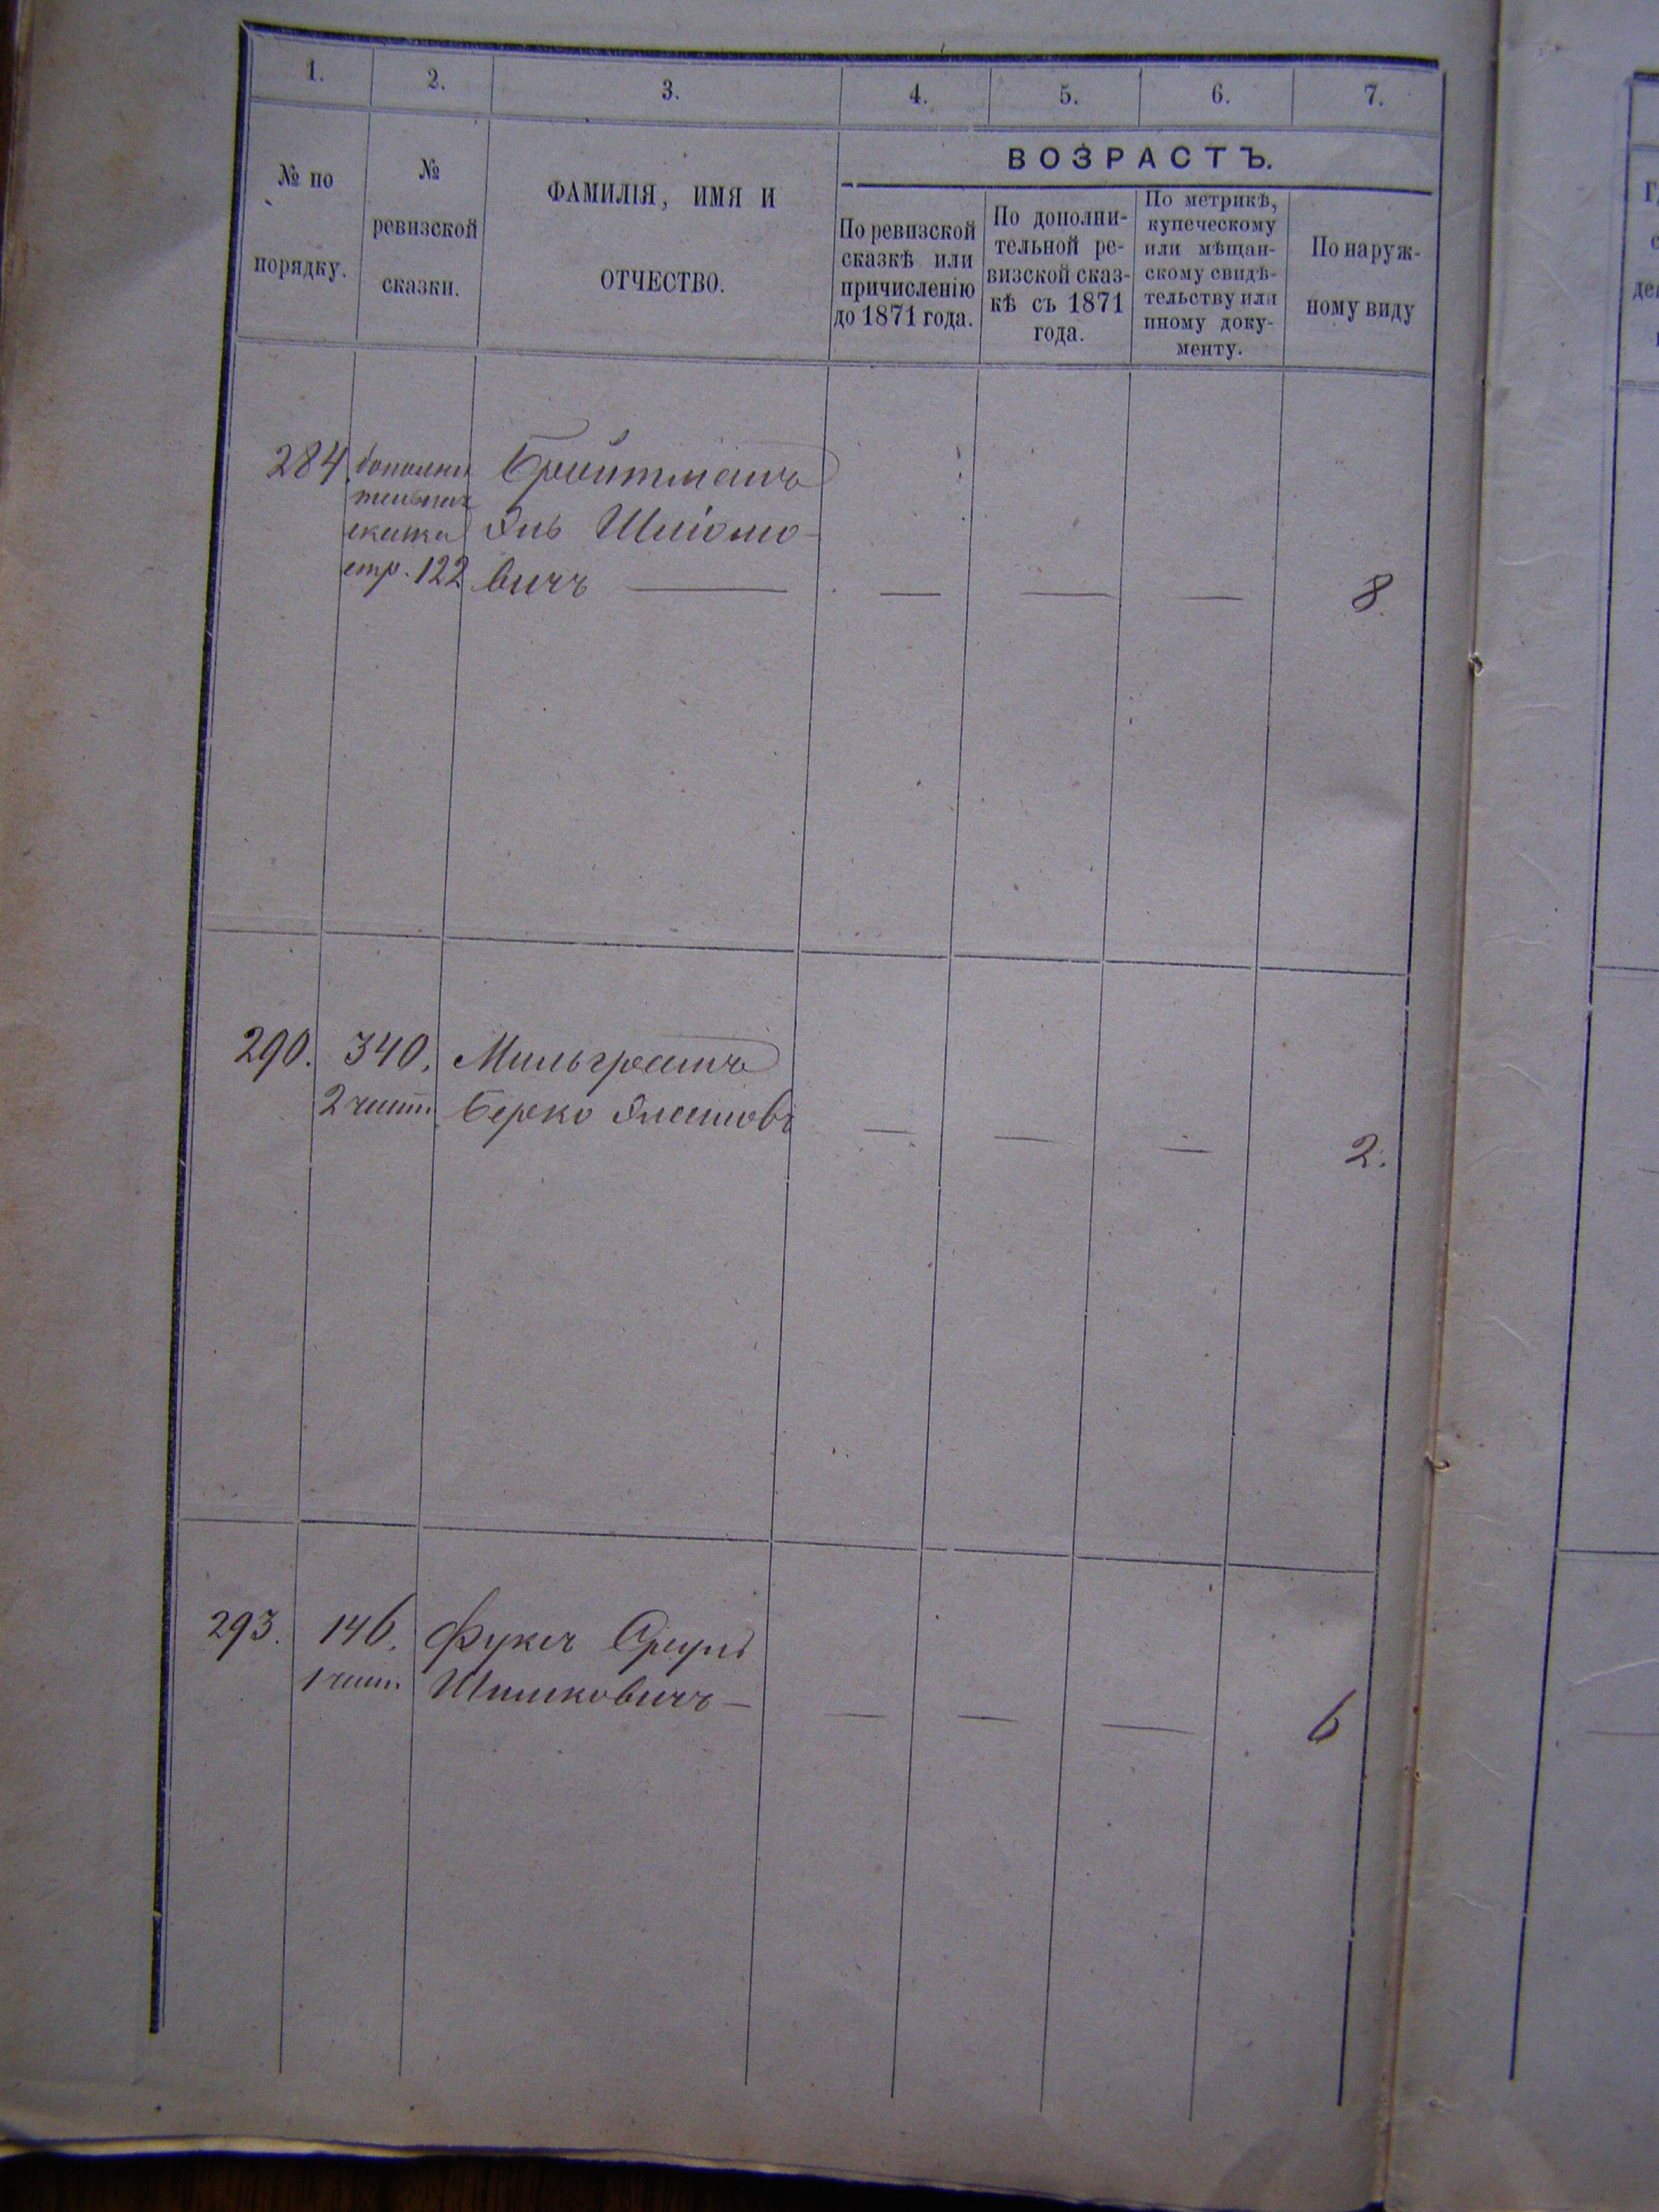 1. 2. 3. 4. 5. 6. 7.
№ по
порядку.
№
ревизской
сказки.
ФАМИЛІЯ, ИМЯ И
ОТЧЕСТВО.
ВОЗРАСТЪ.
По ревизской
сказкѣ или
причисленію
до 1871 года.
По дополни-
тельной ре-
визской сказ-
кѣ съ 1871
года.
По метрикѣ,
купеческому
или мѣщан-
скому свидѣ-
тельству или
иному доку-
менту.
По наруж-
ному виду
284. дополни
тельная
сказка
стр. 122
Бройтманъ
Янь Шліомо-
вичъ — — — — 8.
290. 340. Мильграмъ
2 част. Берко — — — 2.
293. 146. Фуксъ Сруль
1 част. Шмиковичъ — — — — 6